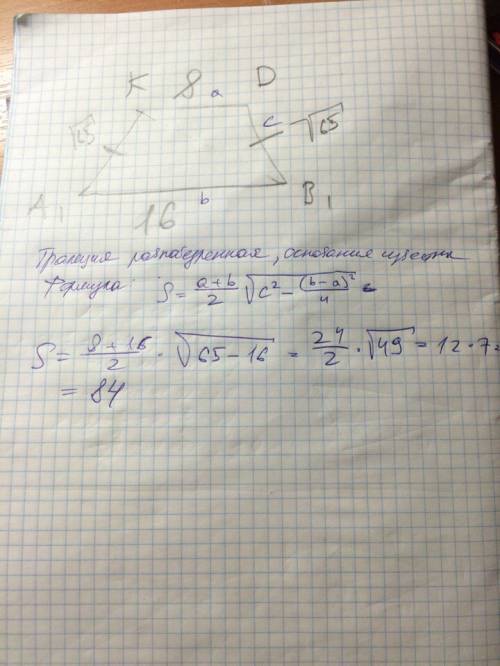 K 8 a D
√65 c √65
A₁ 16 b B₁
Трапеция равнобедренная, основания известны
Формула: S = (a+b)/2 √(c² − (b−a)²/4) =
S = (8+16)/2 · √(65−16) = 24/2 · √49 = 12·7=
= 84